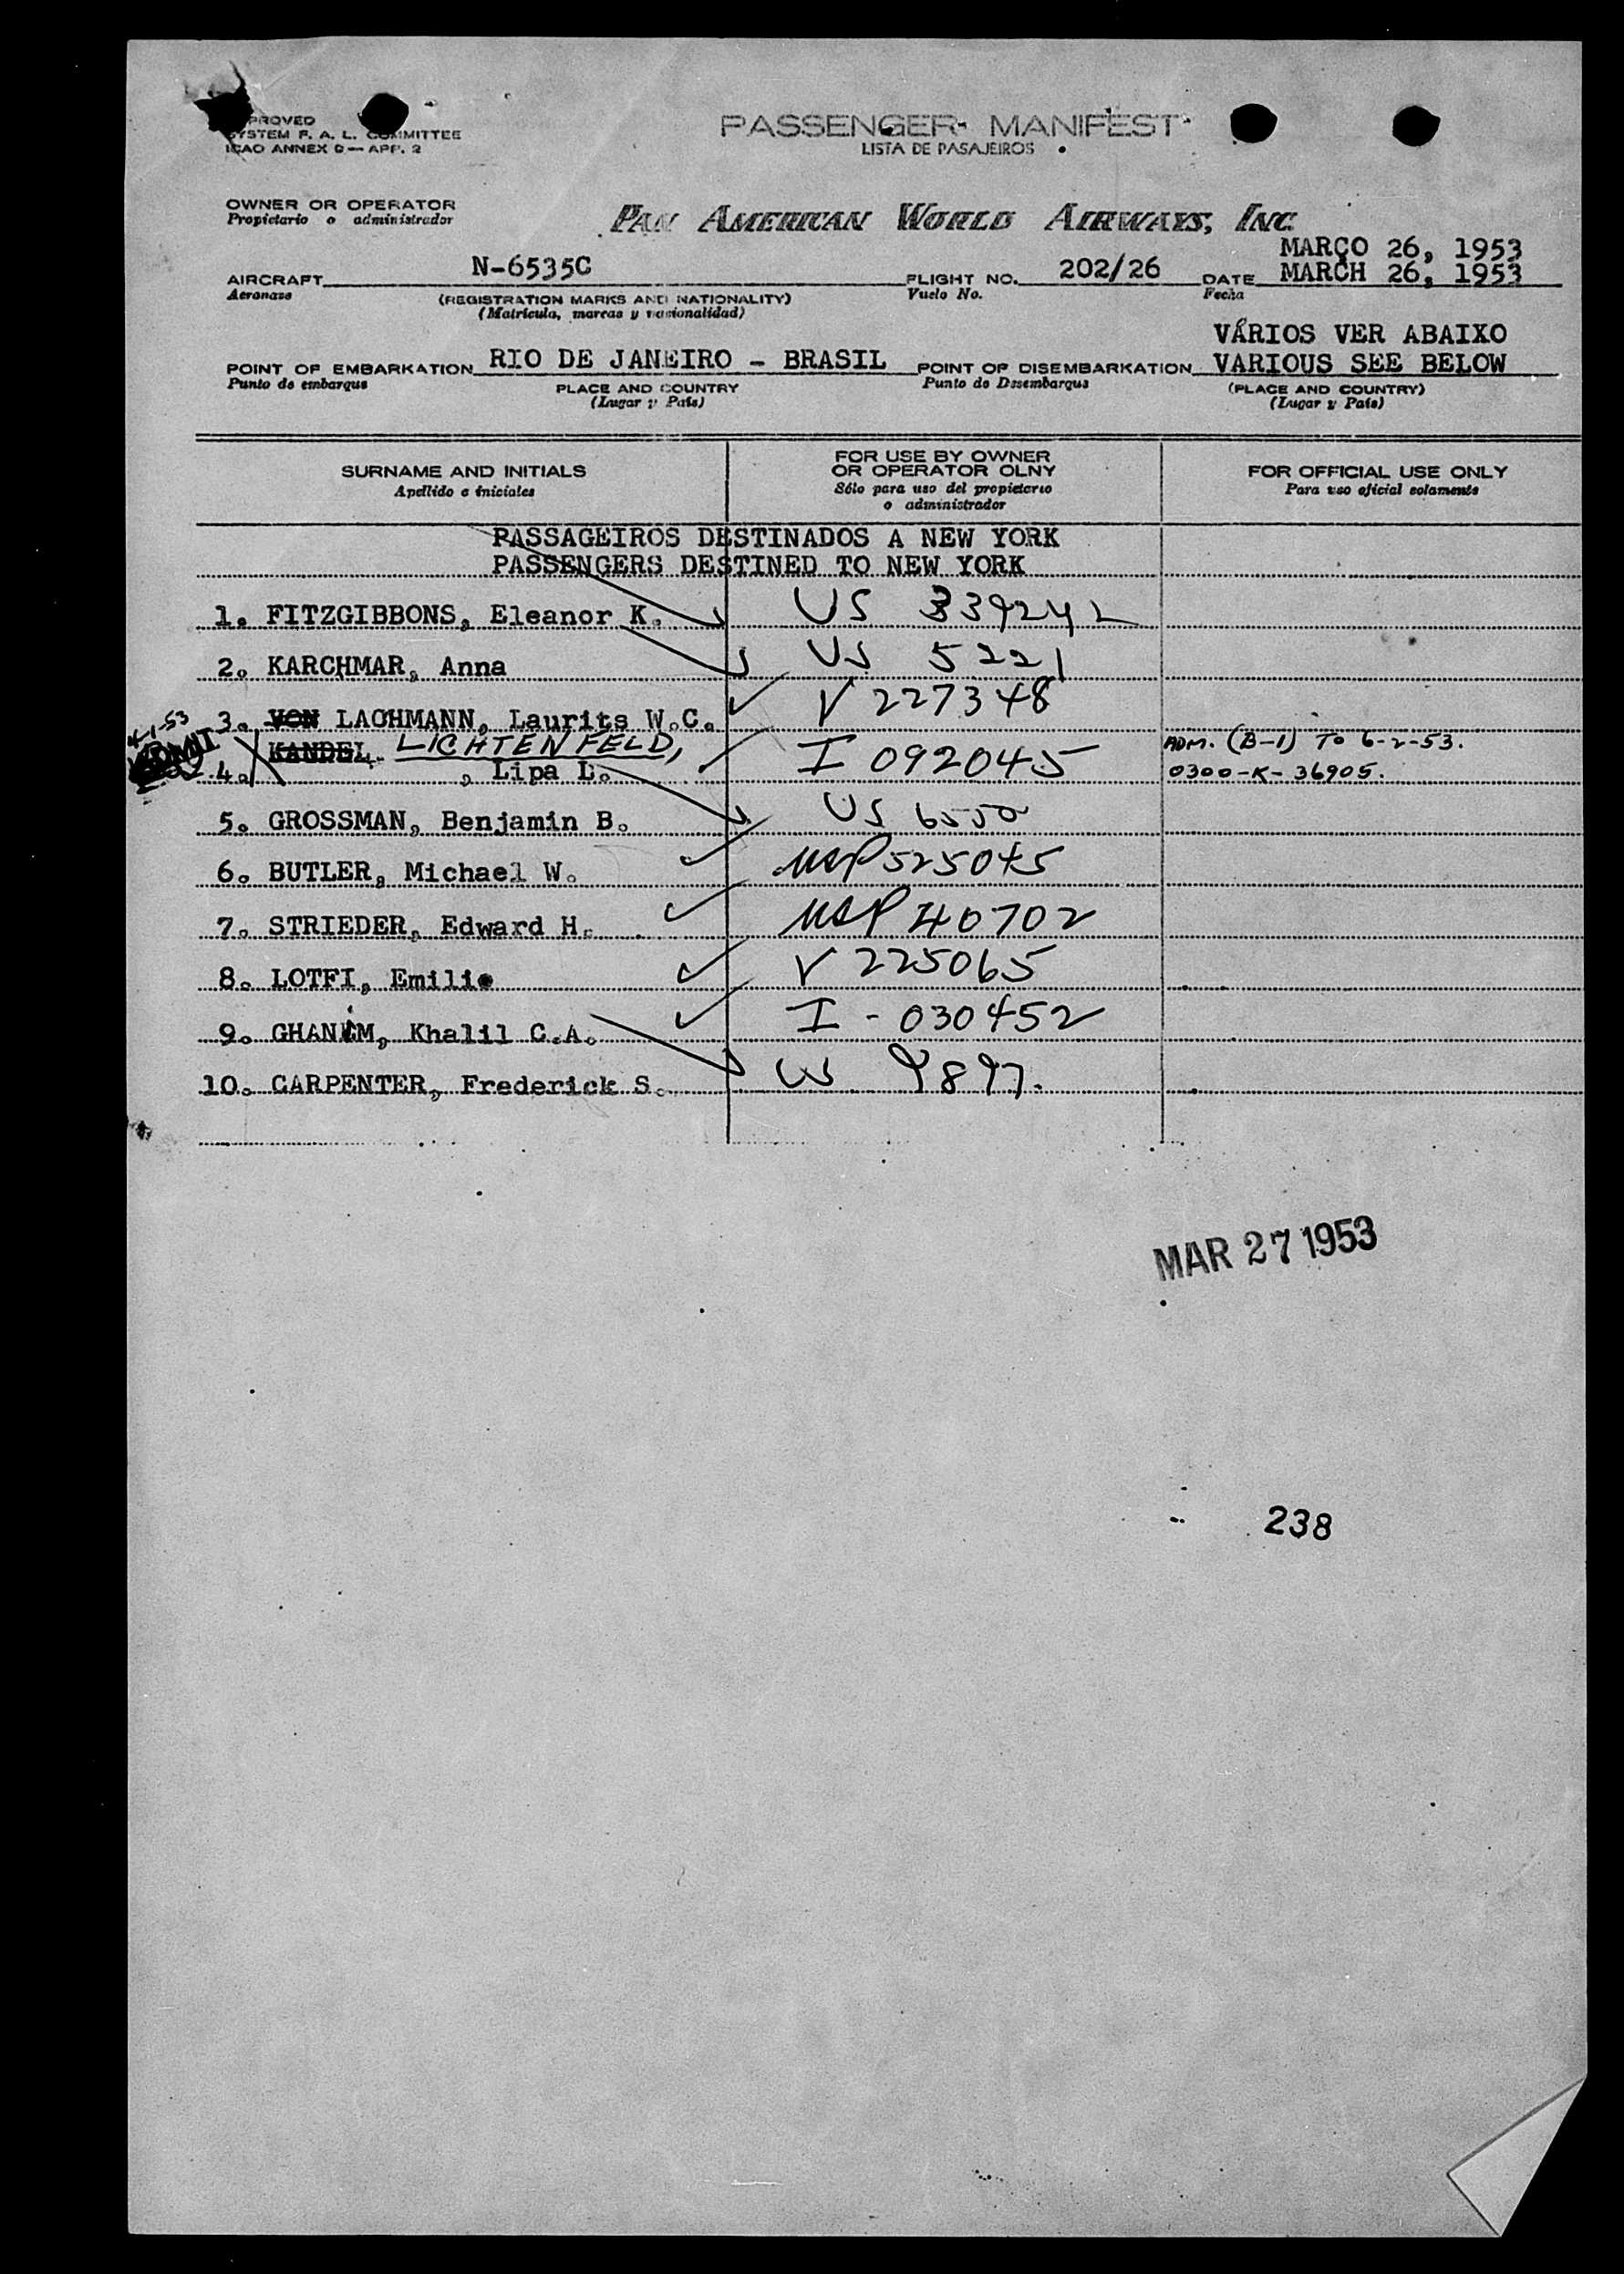 PROVED
SYSTEM F. A. L. COMMITTEE
ICAO ANNEX 9 — APP. 2
PASSENGER MANIFEST
LISTA DE PASAJEIROS
OWNER OR OPERATOR
Propietario o administrador
PAN AMERICAN WORLD AIRWAYS, INC
MARÇO 26, 1953
AIRCRAFT N-6535C FLIGHT NO. 202/26 DATE MARCH 26, 1953
Aeronase (REGISTRATION MARKS AND NATIONALITY) Vuelo No. Fecha
(Matrícula, marcas y nacionalidad)
VÁRIOS VER ABAIXO
POINT OF EMBARKATION RIO DE JANEIRO - BRASIL POINT OF DISEMBARKATION VARIOUS SEE BELOW
Punto de embarque PLACE AND COUNTRY Punto de Desembarque (PLACE AND COUNTRY)
(Lugar y País) (Lugar y País)
SURNAME AND INITIALS FOR USE BY OWNER OR OPERATOR OLNY FOR OFFICIAL USE ONLY
Apellido e iniciales Sólo para uso del propietario o administrador Para uso oficial solamente
PASSAGEIROS DESTINADOS A NEW YORK
PASSENGERS DESTINED TO NEW YORK
1. FITZGIBBONS, Eleanor K. US 339242
2. KARCHMAR, Anna US 5221
3. VON LACHMANN, Laurits W.C. V 227348
4-1-53
KANDEL LICHTENFELD, I 092045 ADM. (B-1) TO 6-2-53.
4. , Lipa L. 0300-K-36905.
5. GROSSMAN, Benjamin B. US 6550
6. BUTLER, Michael W. USP 525045
7. STRIEDER, Edward H. USP 40702
8. LOTFI, Emilie V 225065
9. GHANIM, Khalil C.A. I - 030452
10. CARPENTER, Frederick S. US 9897.
MAR 27 1953
238